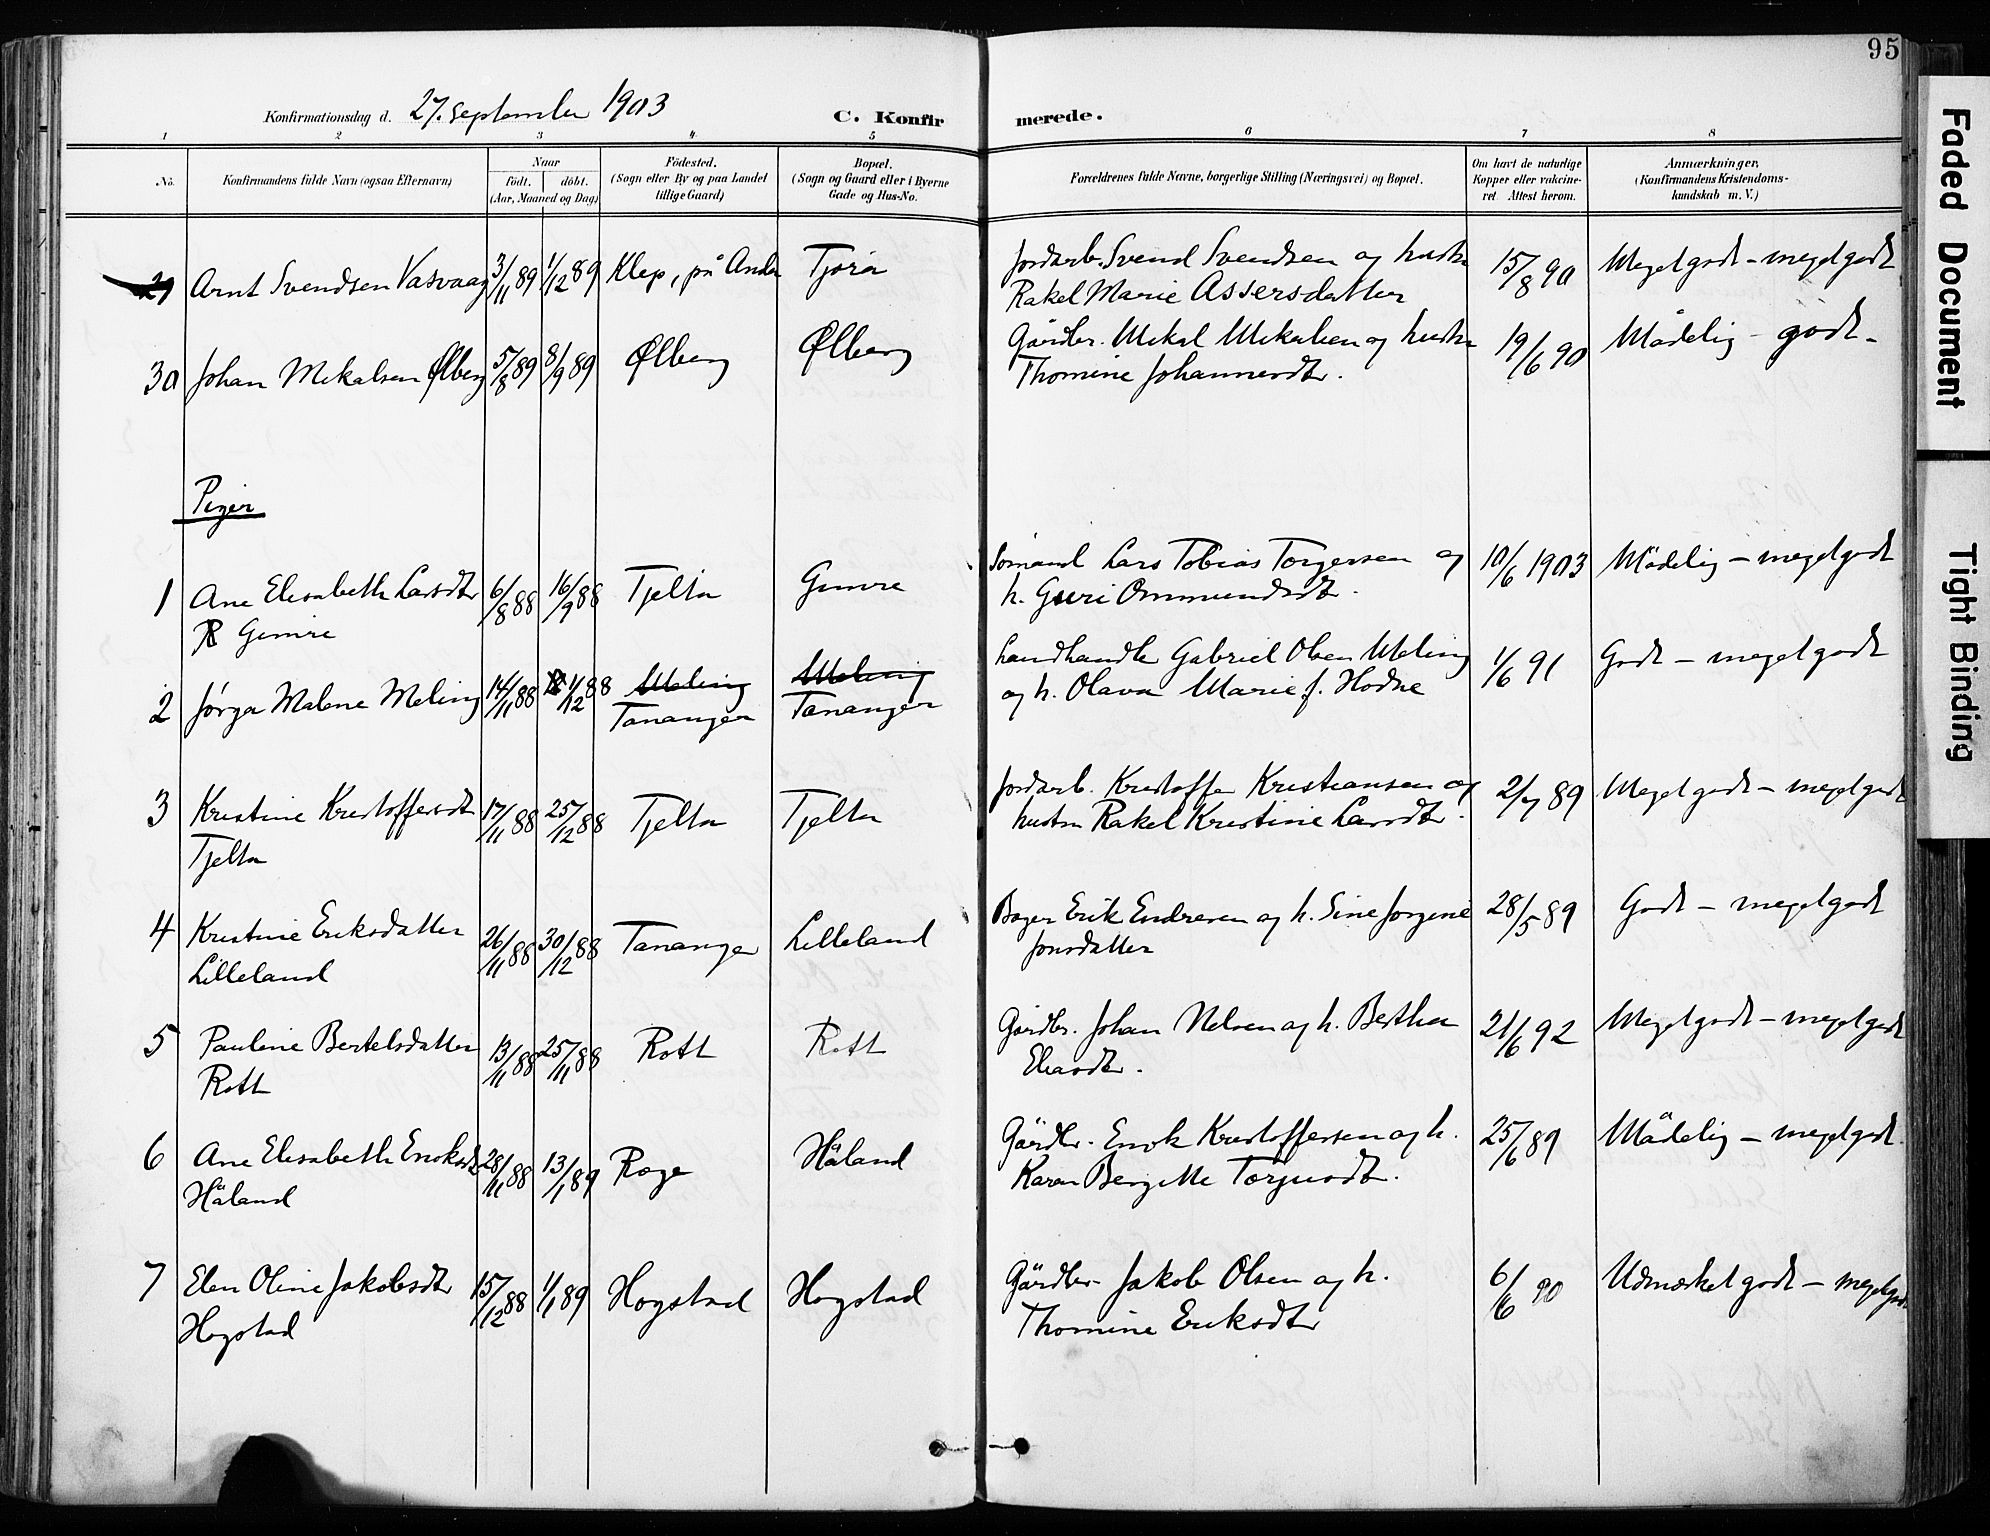 95
Konfirmationsdag d. 27. September 1903
C. Konfirmerede.
1 2 3 4 5 6 7 8
No.
Konfirmandens fulde Navn (ogsaa Efternavn)
Naar
født. døbt.
(Aar, Maaned og Dag)
Födested.
(Sogn eller By og paa Landet
tillige Gaard)
Bopæl.
(Sogn og Gaard eller i Byerne
Gade og Hus-No.
Forældrenes fulde Navne, borgerlige Stilling (Næringsvei) og Bopæl.
Om havt de naturlige
Kopper eller vakcine-
ret Attest herom.
Anmærkninger,
(Konfirmandens Kristendoms-
kundskab m. V.)
29 Arnt Svendsen Vasvaag 3/11 89 1/12 89 Klep, på Anda Tjora Jordarb. Svend Svendsen og hustru 15/8 90 Meget godt – meget godt
Rakel Marie Assersdatter
30 Johan Mikalsen Ølberg 5/8 89 8/9 89 Ølberg Ølberg Gårdbr. Mikal Mikalsen og hustru 19/6 90 Mådelig – godt –
Thomine Johannesdtr.
Piger
1 Ane Elisabeth Larsdtr 6/8 88 16/9 88 Tjelta Gimre Sömand Lars Tobias Torgersen og 10/6 1903 Mådelig – meget godt
Gimre h. Guri Ommundsdt.
2 Jørga Malene Meling 14/11 88 1/12 88 Meling Meling Landhandler Gabriel Olsen Meling 1/6 91 Godt – meget godt
Tananger Tananger og h. Olava Marie f. Hodne
3 Kristine Kristoffersdt 17/11 88 25/12 88 Tjelta Tjelta Jordarb. Kristoffer Kristiansen og 2/7 89 Meget godt – meget godt
Tjelta hustru Rakel Kristine Larsdtr.
4 Kristine Eriksdatter 26/11 88 30/12 88 Tananger Lilleland Bager Erik Endresen og h. Sine Jorgine 28/5 89 Godt – meget godt
Lilleland Jonsdatter
5 Pauline Bertelsdatter 13/11 88 25/11 88 Rott Rott Gårdbr. Johan Nelsen og h. Berthea 21/6 92 Meget godt – meget godt
Rott Eliasdtr.
6 Ane Elisabeth Enoksdt 28/11 88 13/1 89 Roge Håland Gårdbr. Enok Kristoffersen og h. 25/6 89 Mådelig – meget godt
Håland Karen Bergitte Torjusdt.
7 Elen Oline Jakobsdtr 15/12 88 1/1 89 Hogstad Hogstad Gårdbr. Jakob Olsen og h. 6/6 90 Udmærket godt – meget godt
Hogstad Thomine Eriksdtr
Faded Document
Tight Binding